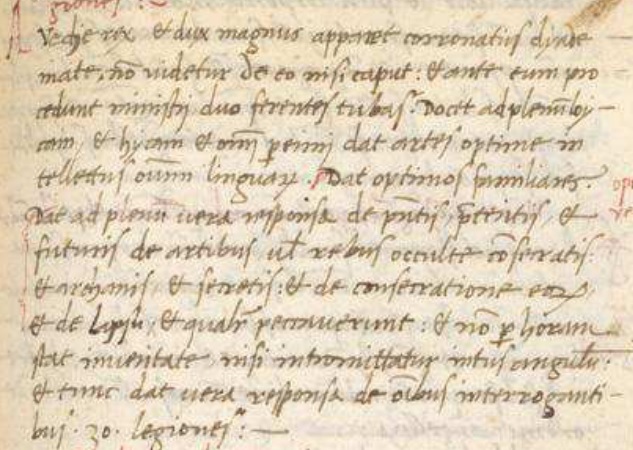 giones:
Veche rex & dux magnus apparet corronatus dyade
mate, nō uidetur de eo nisi caput: & ante eum pro
cedunt ministri duo ferentes tubas. Docet ad plenū loy-
cam, & hycam & om̄
dat artes optime in
tellectus oīum linguaꝝ. Dat optimos familiares.
Dat ad plenū uera responsa de p̄ntis, p̄teritis, &
futuris de artibus ul̄ rebus occulte cōsecratis
& archanis, & secretis: & de consecratione eoꝝ
& de lapsu, & qual'r peccauerunt: & nō ꝑ horam
stat nisi intromittatur intus angulū.
& tunc dat uera responsa de oībus interroganti-
bus. 30. legiones: